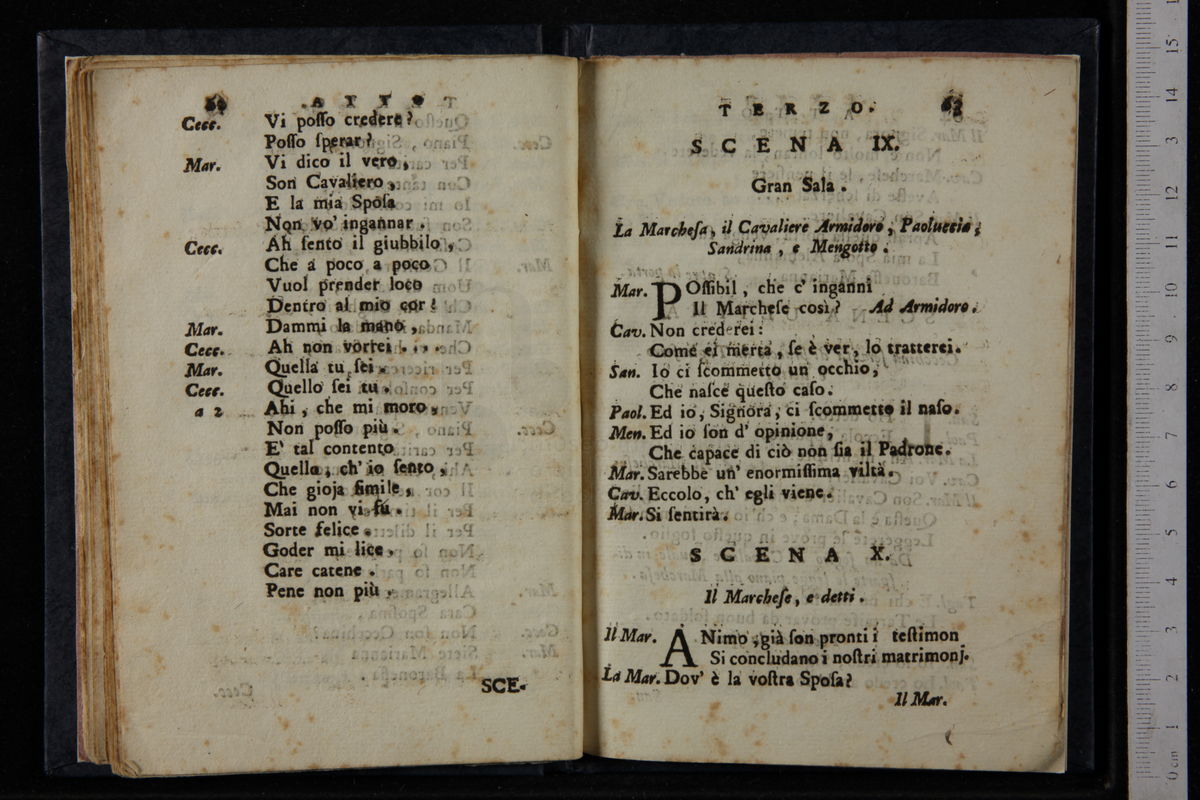 60 ATTO
Cecc. Vi posso credere?
Posso sperar?
Mar. Vi dico il vero,
Son Cavaliero,
E la mia Sposa
Non vo' ingannar.
Cecc. Ah sento il giubbilo,
Che a poco a poco
Vuol prender loco
Dentro al mio cor!
Mar. Dammi la mano,
Cecc. Ah non vorrei...
Mar. Quella tu sei.
Cecc. Quello sei tu.
a 2 Ahi, che mi moro,
Non posso più.
E' tal contento
Quello, ch' io sento,
Che gioja simile,
Mai non vi fù.
Sorte felice.
Goder mi lice,
Care catene.
Pene non più,
SCE-
TERZO. 63
SCENA IX.
Gran Sala.
La Marchesa, il Cavaliere Armidoro, Paoluccio,
Sandrina, e Mengotto.
Mar. POssibil, che c' inganni
Il Marchese così? Ad Armidoro.
Cav. Non crederei:
Come ei merta, se è ver, lo tratterei.
San. Io ci scommetto un occhio,
Che nasce questo caso.
Paol. Ed io, Signora, ci scommetto il naso.
Men. Ed io son d' opinione,
Che capace di ciò non sia il Padrone.
Mar. Sarebbe un' enormissima viltà.
Cav. Eccolo, ch' egli viene.
Mar. Si sentirà.
SCENA X.
Il Marchese, e detti.
Il Mar. ANimo, già son pronti i testimon
Si concludano i nostri matrimonj.
La Mar. Dov' è la vostra Sposa?
Il Mar.